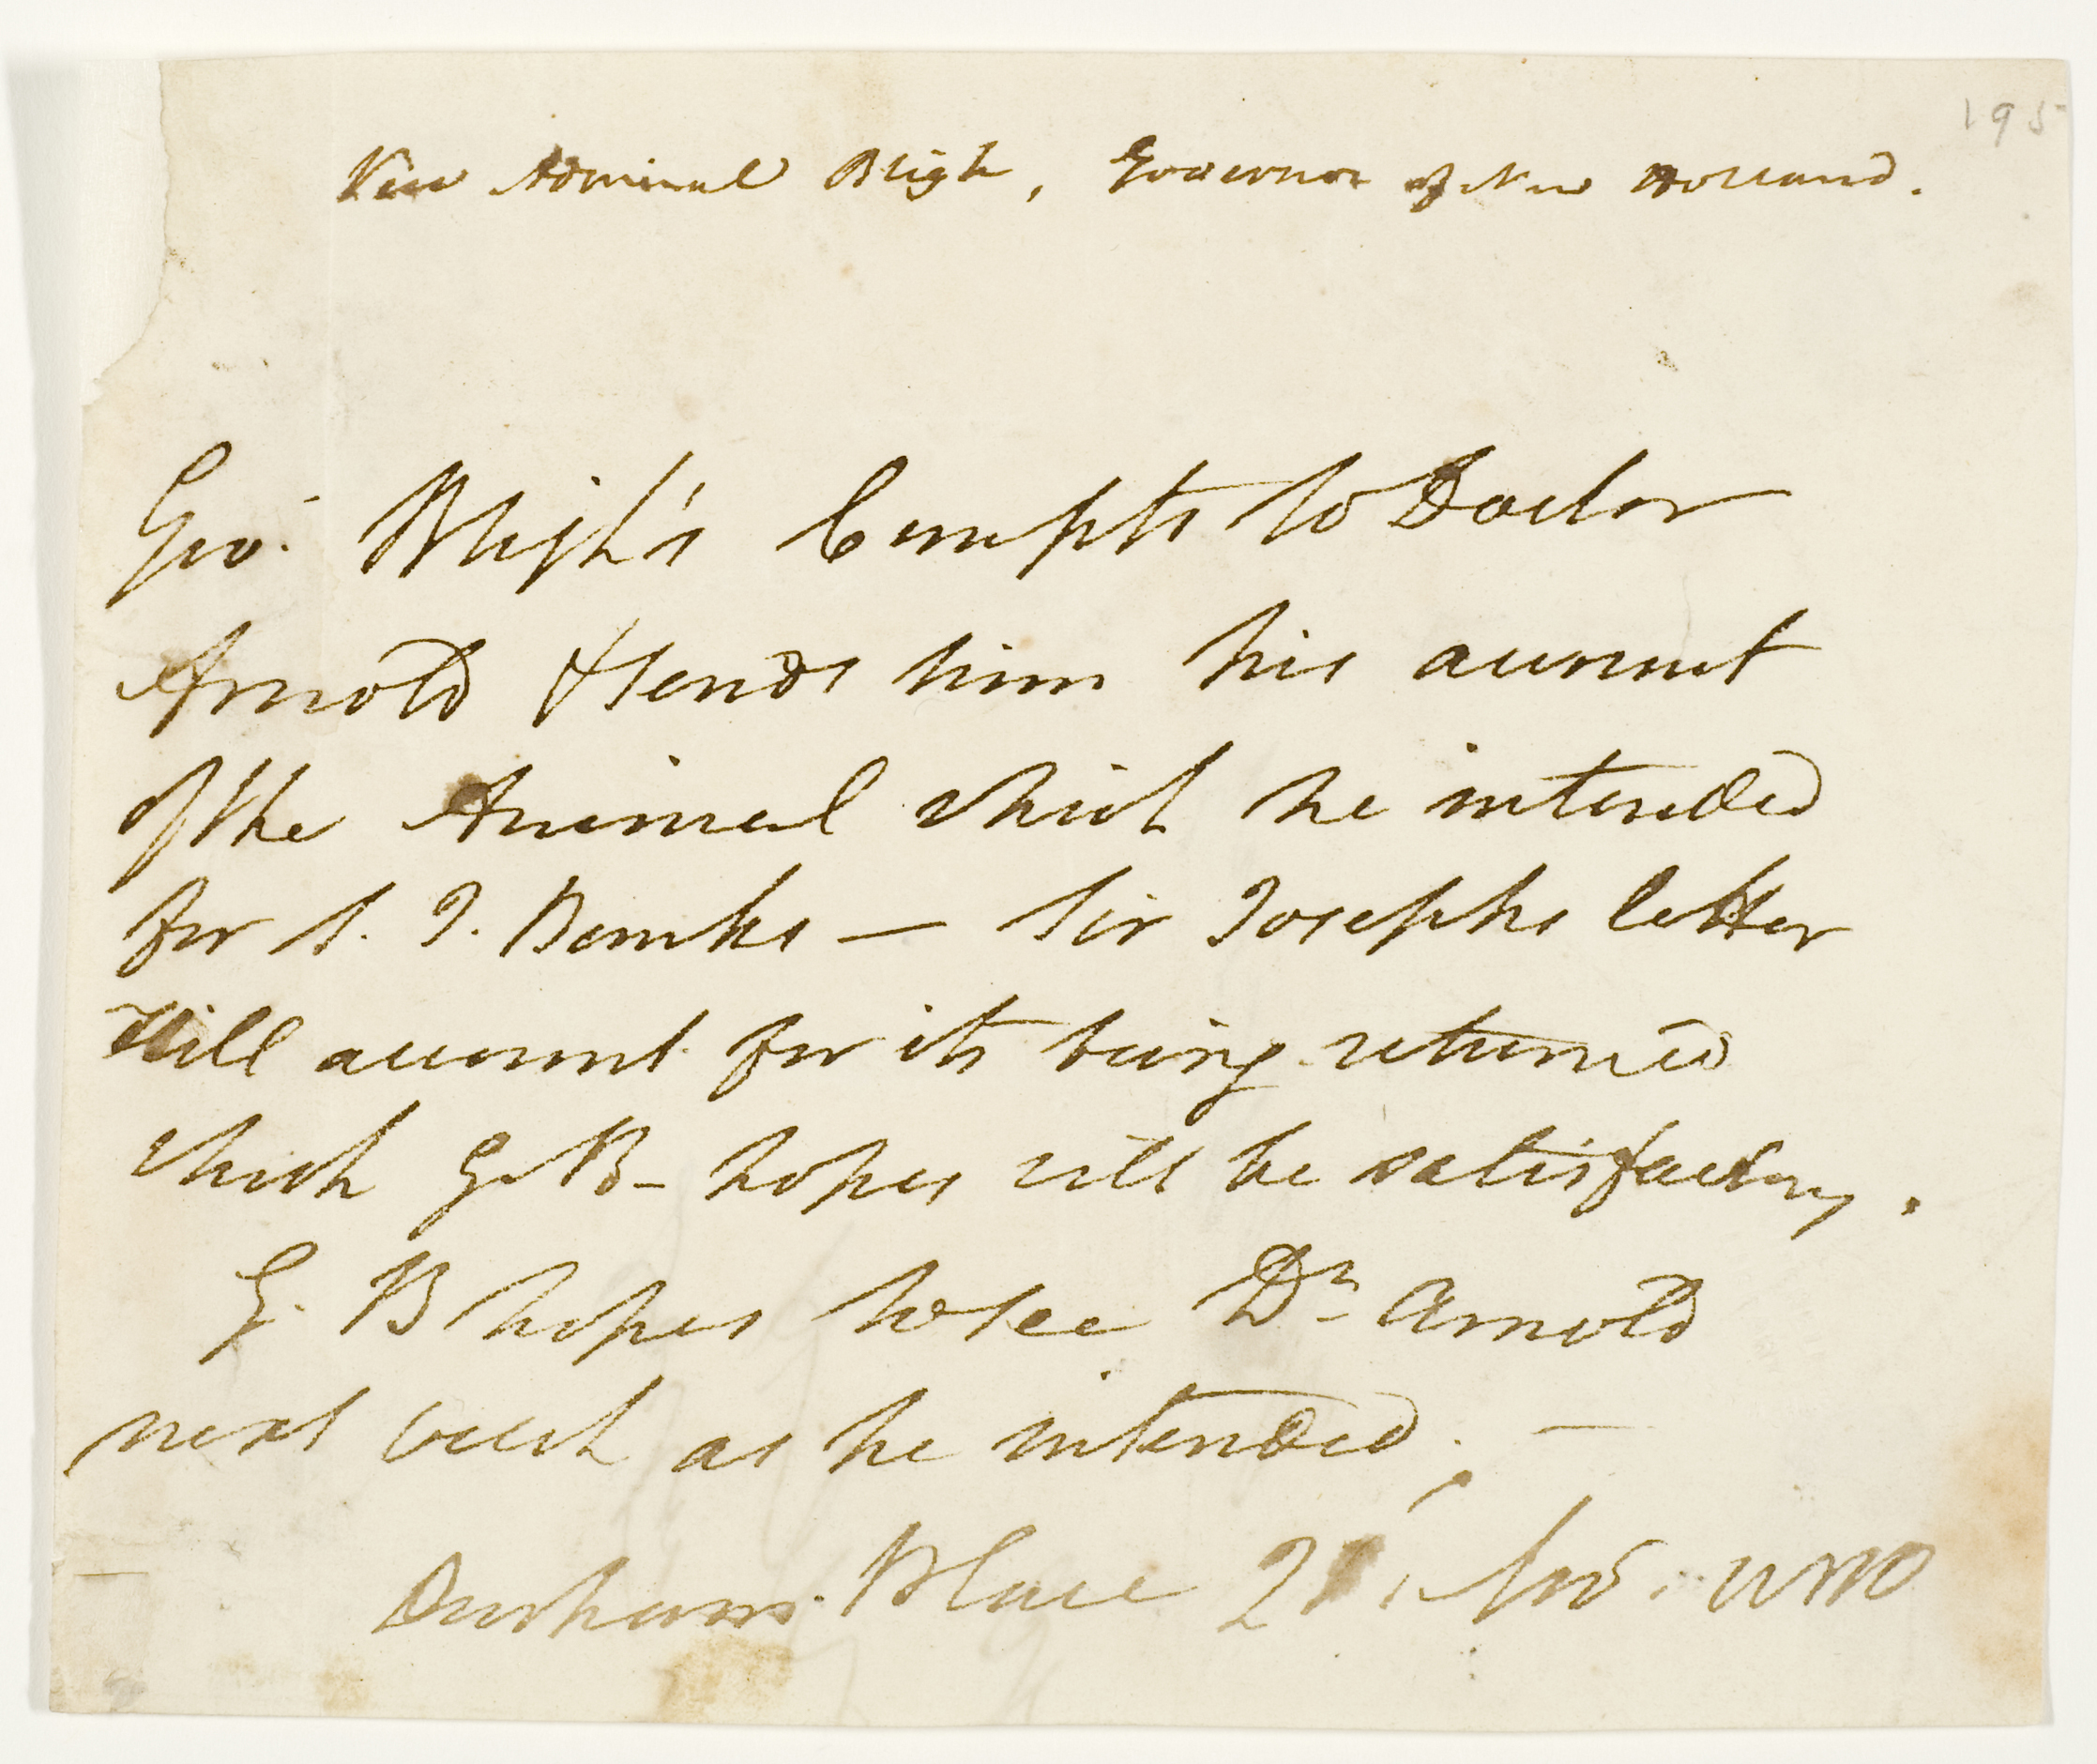 195
Vice Admiral Bligh, Governor of New Holland.
Gov.r Bligh's Compts to Doctor
Arnold & sends him his account
of the Animal which he intended
for S. J. Banks — Sir Josephs letter
Will account for its being returned
which G. B— hopes will be satisfactory.
G. B hopes to see Dr Arnold
next week as he intended. —
Durham Place 21